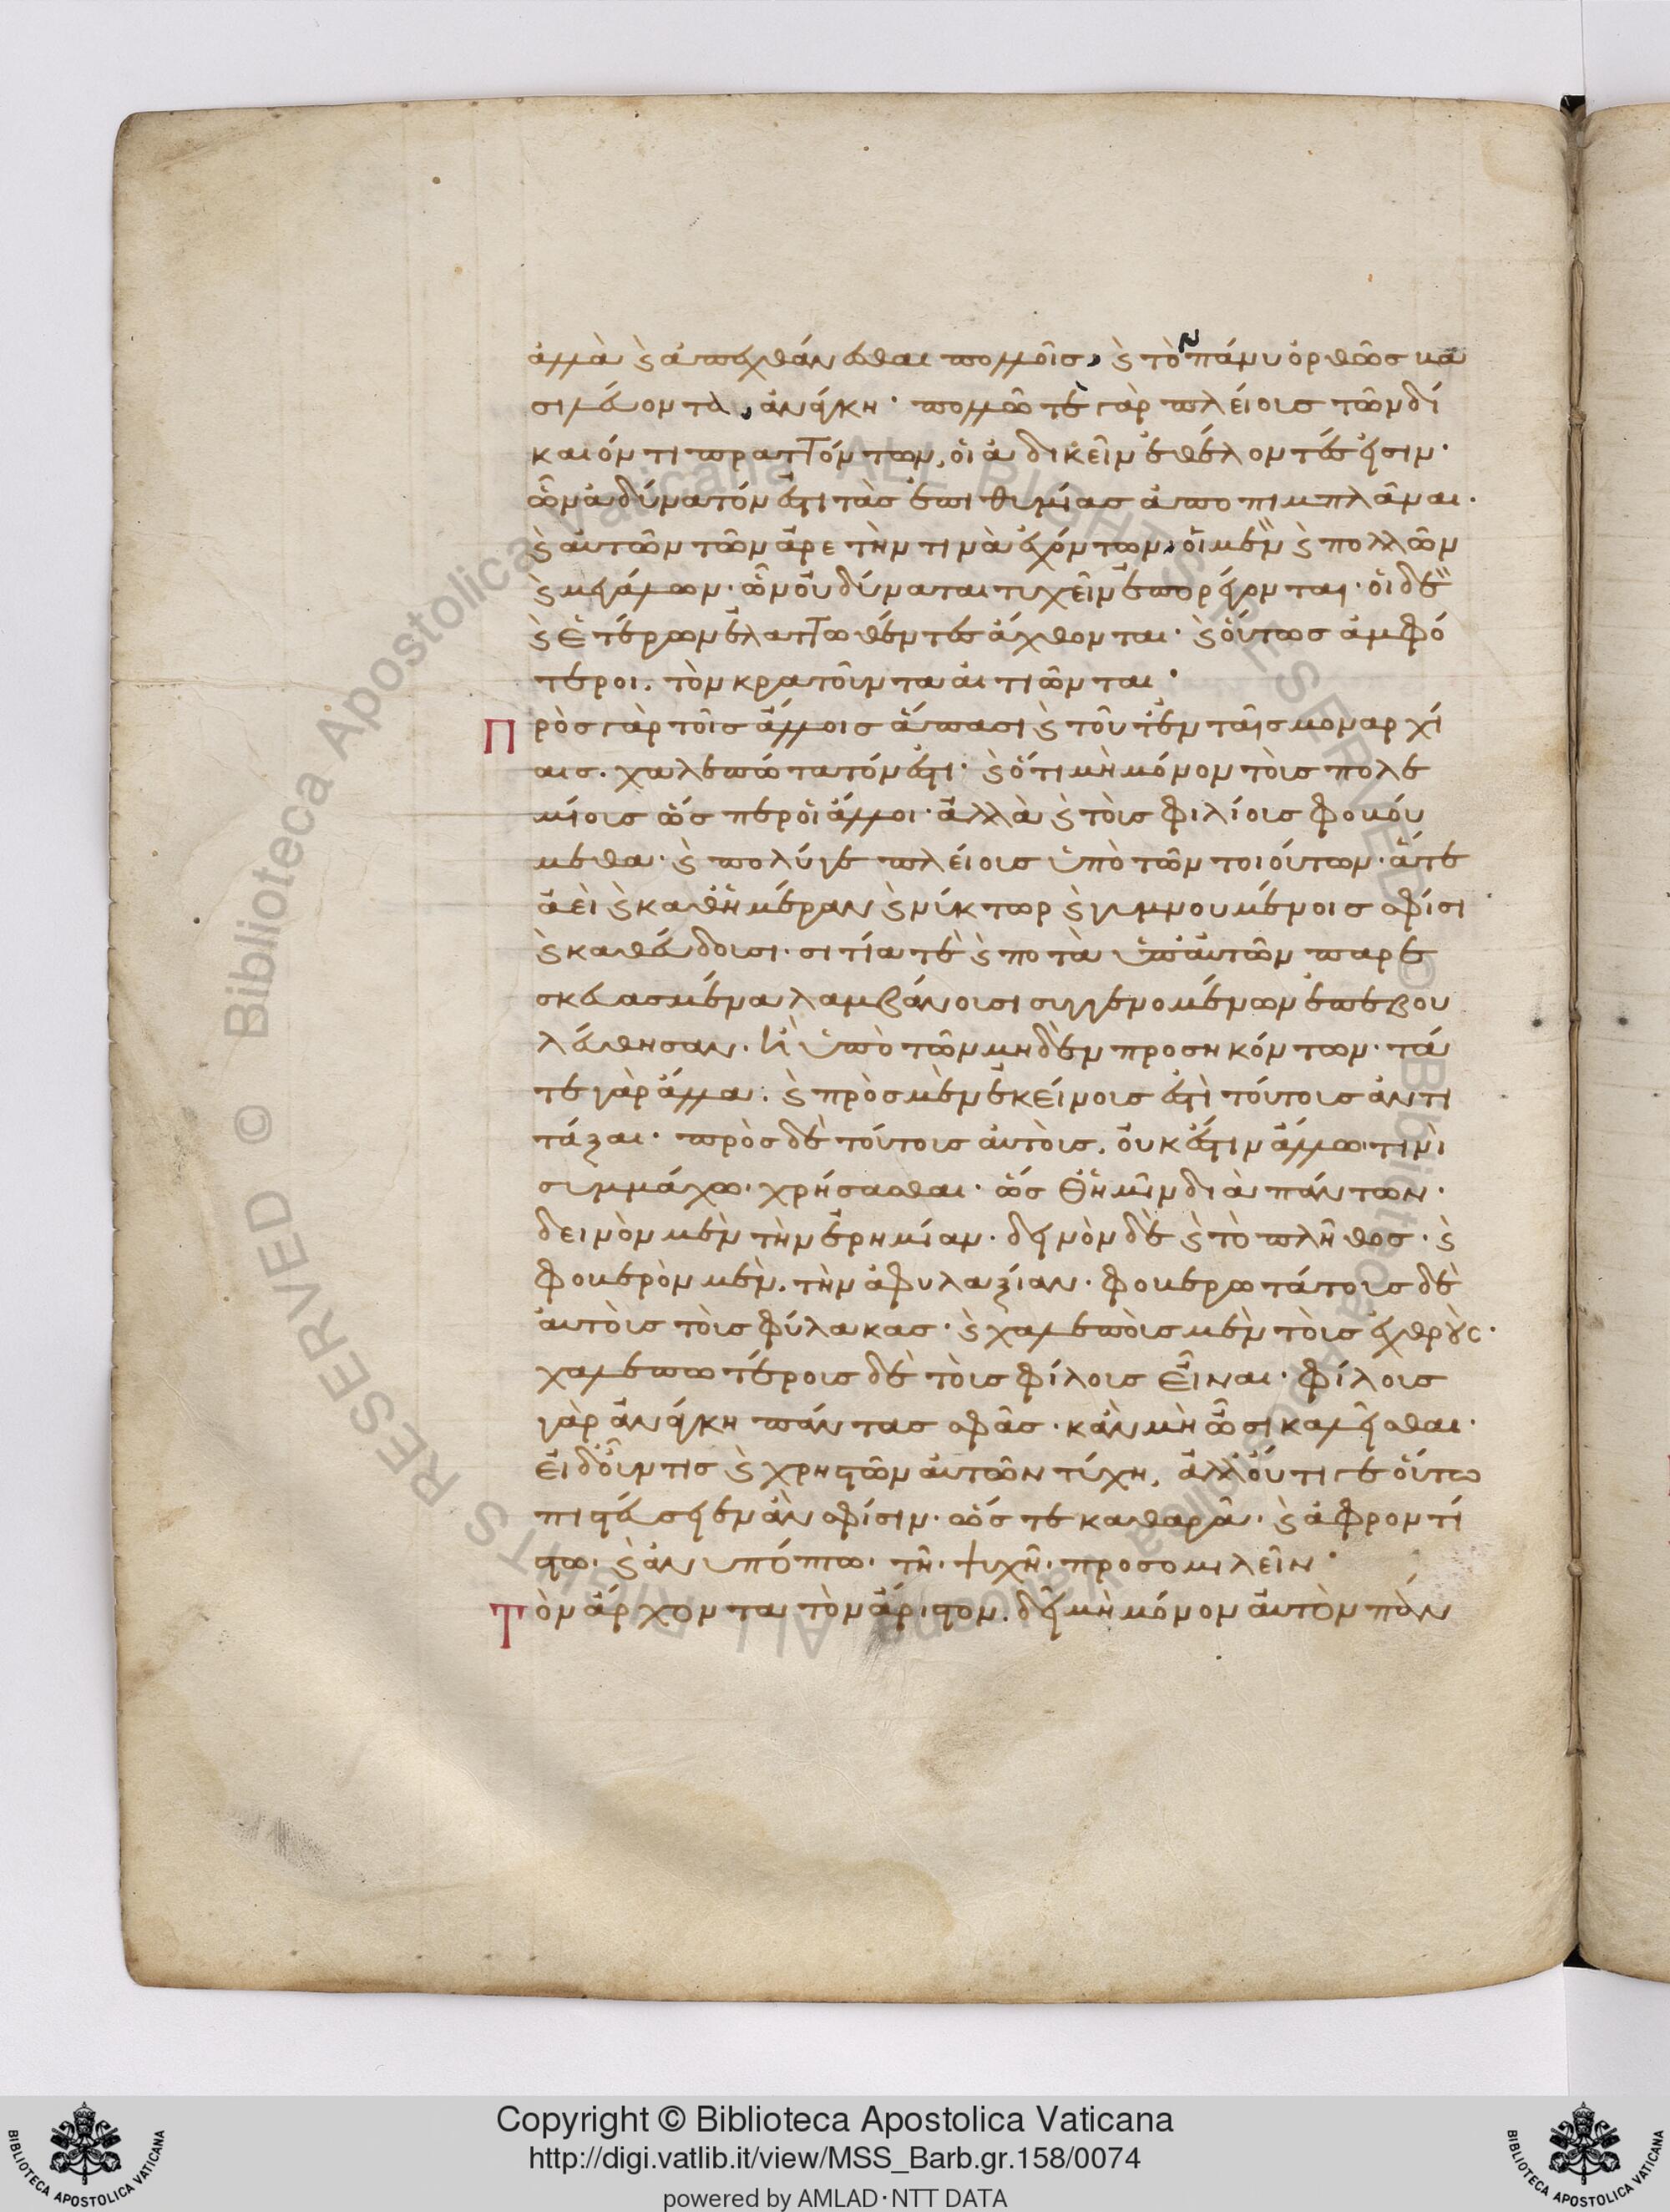 ἀλλὰ καὶ ἀπεχθάνεσθαι πολλοῖς, καὶ τὸν πάνυ ὀρθῶς βα
σιλεύοντα, ἀνάγκη· πολλῶ τὲ γὰρ πλείους τῶν δί
καιόν τι πραττόντων, οἱ ἀδικεῖν ἐθέλοντές εἰσιν·
ὧν ἀδύνατόν ἐστι τὰς ἐπιθυμίας ἀποπιμπλᾶναι.
καὶ αὐτῶν τῶν ἀρετήν τινὰ ἐχόντων, οἱ μὲν καὶ πολλῶν
καὶ μεγάλων· ὧν οὐ δύναται τυχεῖν ἐπορέγονται· οἱ δὲ
καὶ ἑτέρων ἐλαττωθέντες ἄχθονται· καὶ οὕτως ἀμφό
τεροι. τὸν κρατοῦντα αἰτιῶνται·
Πρὸς γὰρ τοῖς ἄλλοις ἅπασι καὶ τοῦτ' ἐν ταῖς μοναρχί
αις. χαλεπώτατόν ἐστι· καὶ ὅτι μὴ μόνον τοὺς πολε
μίους ὥσπερ οἱ ἄλλοι· ἀλλὰ καὶ τοὺς φιλίους φοβού
μεθα· καὶ πολύ γε πλείους ὑπὸ τῶν τοιούτων· ἅτε
ἀεὶ καὶ καθ' ἡμέραν καὶ νύκτωρ καὶ γυμνουμένοις σφίσι
καὶ καθεύδουσι· σιτία τὲ καὶ ποτὰ ὑπ' αὐτῶν παρε
σκευασμένα λαμβάνουσι συγγενομένων ἐπεβου
λεύθησαν. ἢ ὑπὸ τῶν μηδὲν προσηκόντων· τά
τε γὰρ ἄλλα. καὶ πρὸς μὲν ἐκείνους ἐστὶ τούτους ἀντι
τάξαι· πρὸς δὲ τούτους αὐτοὺς, οὐκ ἔστιν ἄλλω τινὶ
συμμάχω· χρήσασθαι· ὥσθ' ἡμῖν διὰ πάντων·
δεινὸν μὲν τὴν ἐρημίαν· δεινὸν δὲ καὶ τὸ πλῆθος· καὶ
φοβερὸν μὲν. τὴν ἀφυλαξίαν· φοβερωτάτους δὲ
αὐτοὺς τοὺς φύλακας· καὶ χαλεποὺς μὲν τοὺς ἐχθρούς·
χαλεπωτέρους δὲ τοὺς φίλους εἶναι· φίλους
γὰρ ἀνάγκη πάντας σφᾶς· κἂν μὴ ὦσι καλεῖσθαι·
εἰ δ' οὖν τις καὶ χρηστῶν αὐτῶν τύχη, ἀλλ' οὔτι γε οὕτω
πιστεύσειεν ἂν σφίσιν· ὥστε καθαρᾶ· καὶ ἀφροντί
στω· καὶ ἀνυπόπτω· τῆ ψυχῆ· προσομιλεῖν·
Τὸν ἄρχοντα τὸν ἄριστον. δεῖ μὴ μόνον αὐτὸν πάν
Copyright © Biblioteca Apostolica Vaticana
http://digi.vatlib.it/view/MSS_Barb.gr.158/0074
powered by AMLAD·NTT DATA